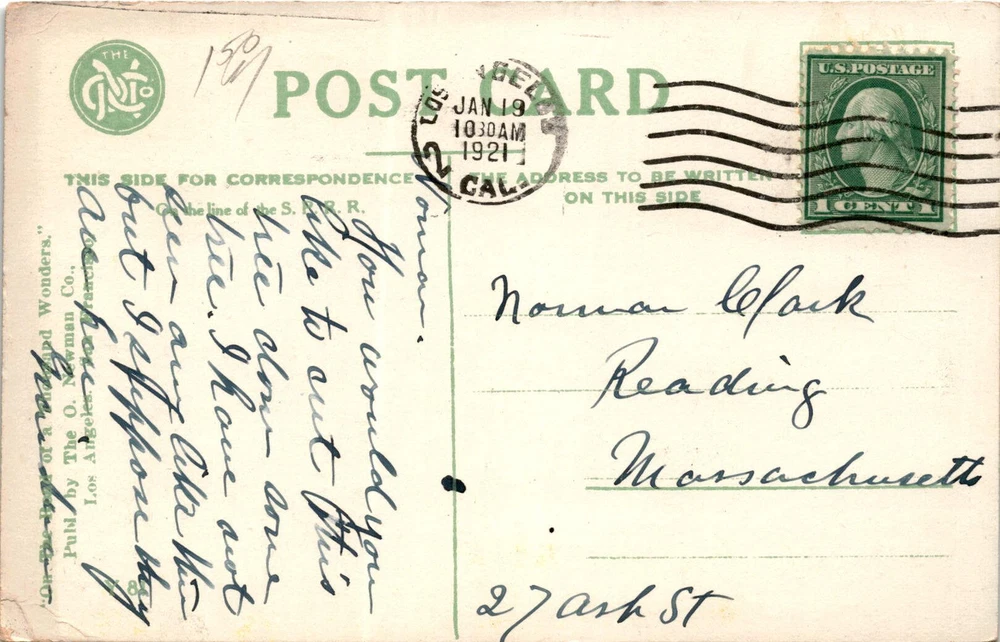 THE
O N Co
150
POST CARD
LOS ANGELES
JAN 19
10 30 AM
1921
2 CAL.
U.S. POSTAGE
1 CENT 1
THIS SIDE FOR CORRESPONDENCE
THE ADDRESS TO BE WRITTEN
ON THIS SIDE
On the line of the S. P. R. R.
Norman.
You would you
like to cut this
tree down some
tree. I have not
seen any like this
but I suppose they
are fine.
"On the Road of a Thousand Wonders."
Publ. by The O. Newman Co.,
Los Angeles. San Francisco
Norman Clark
Reading
Massachusetts
27 Ash St